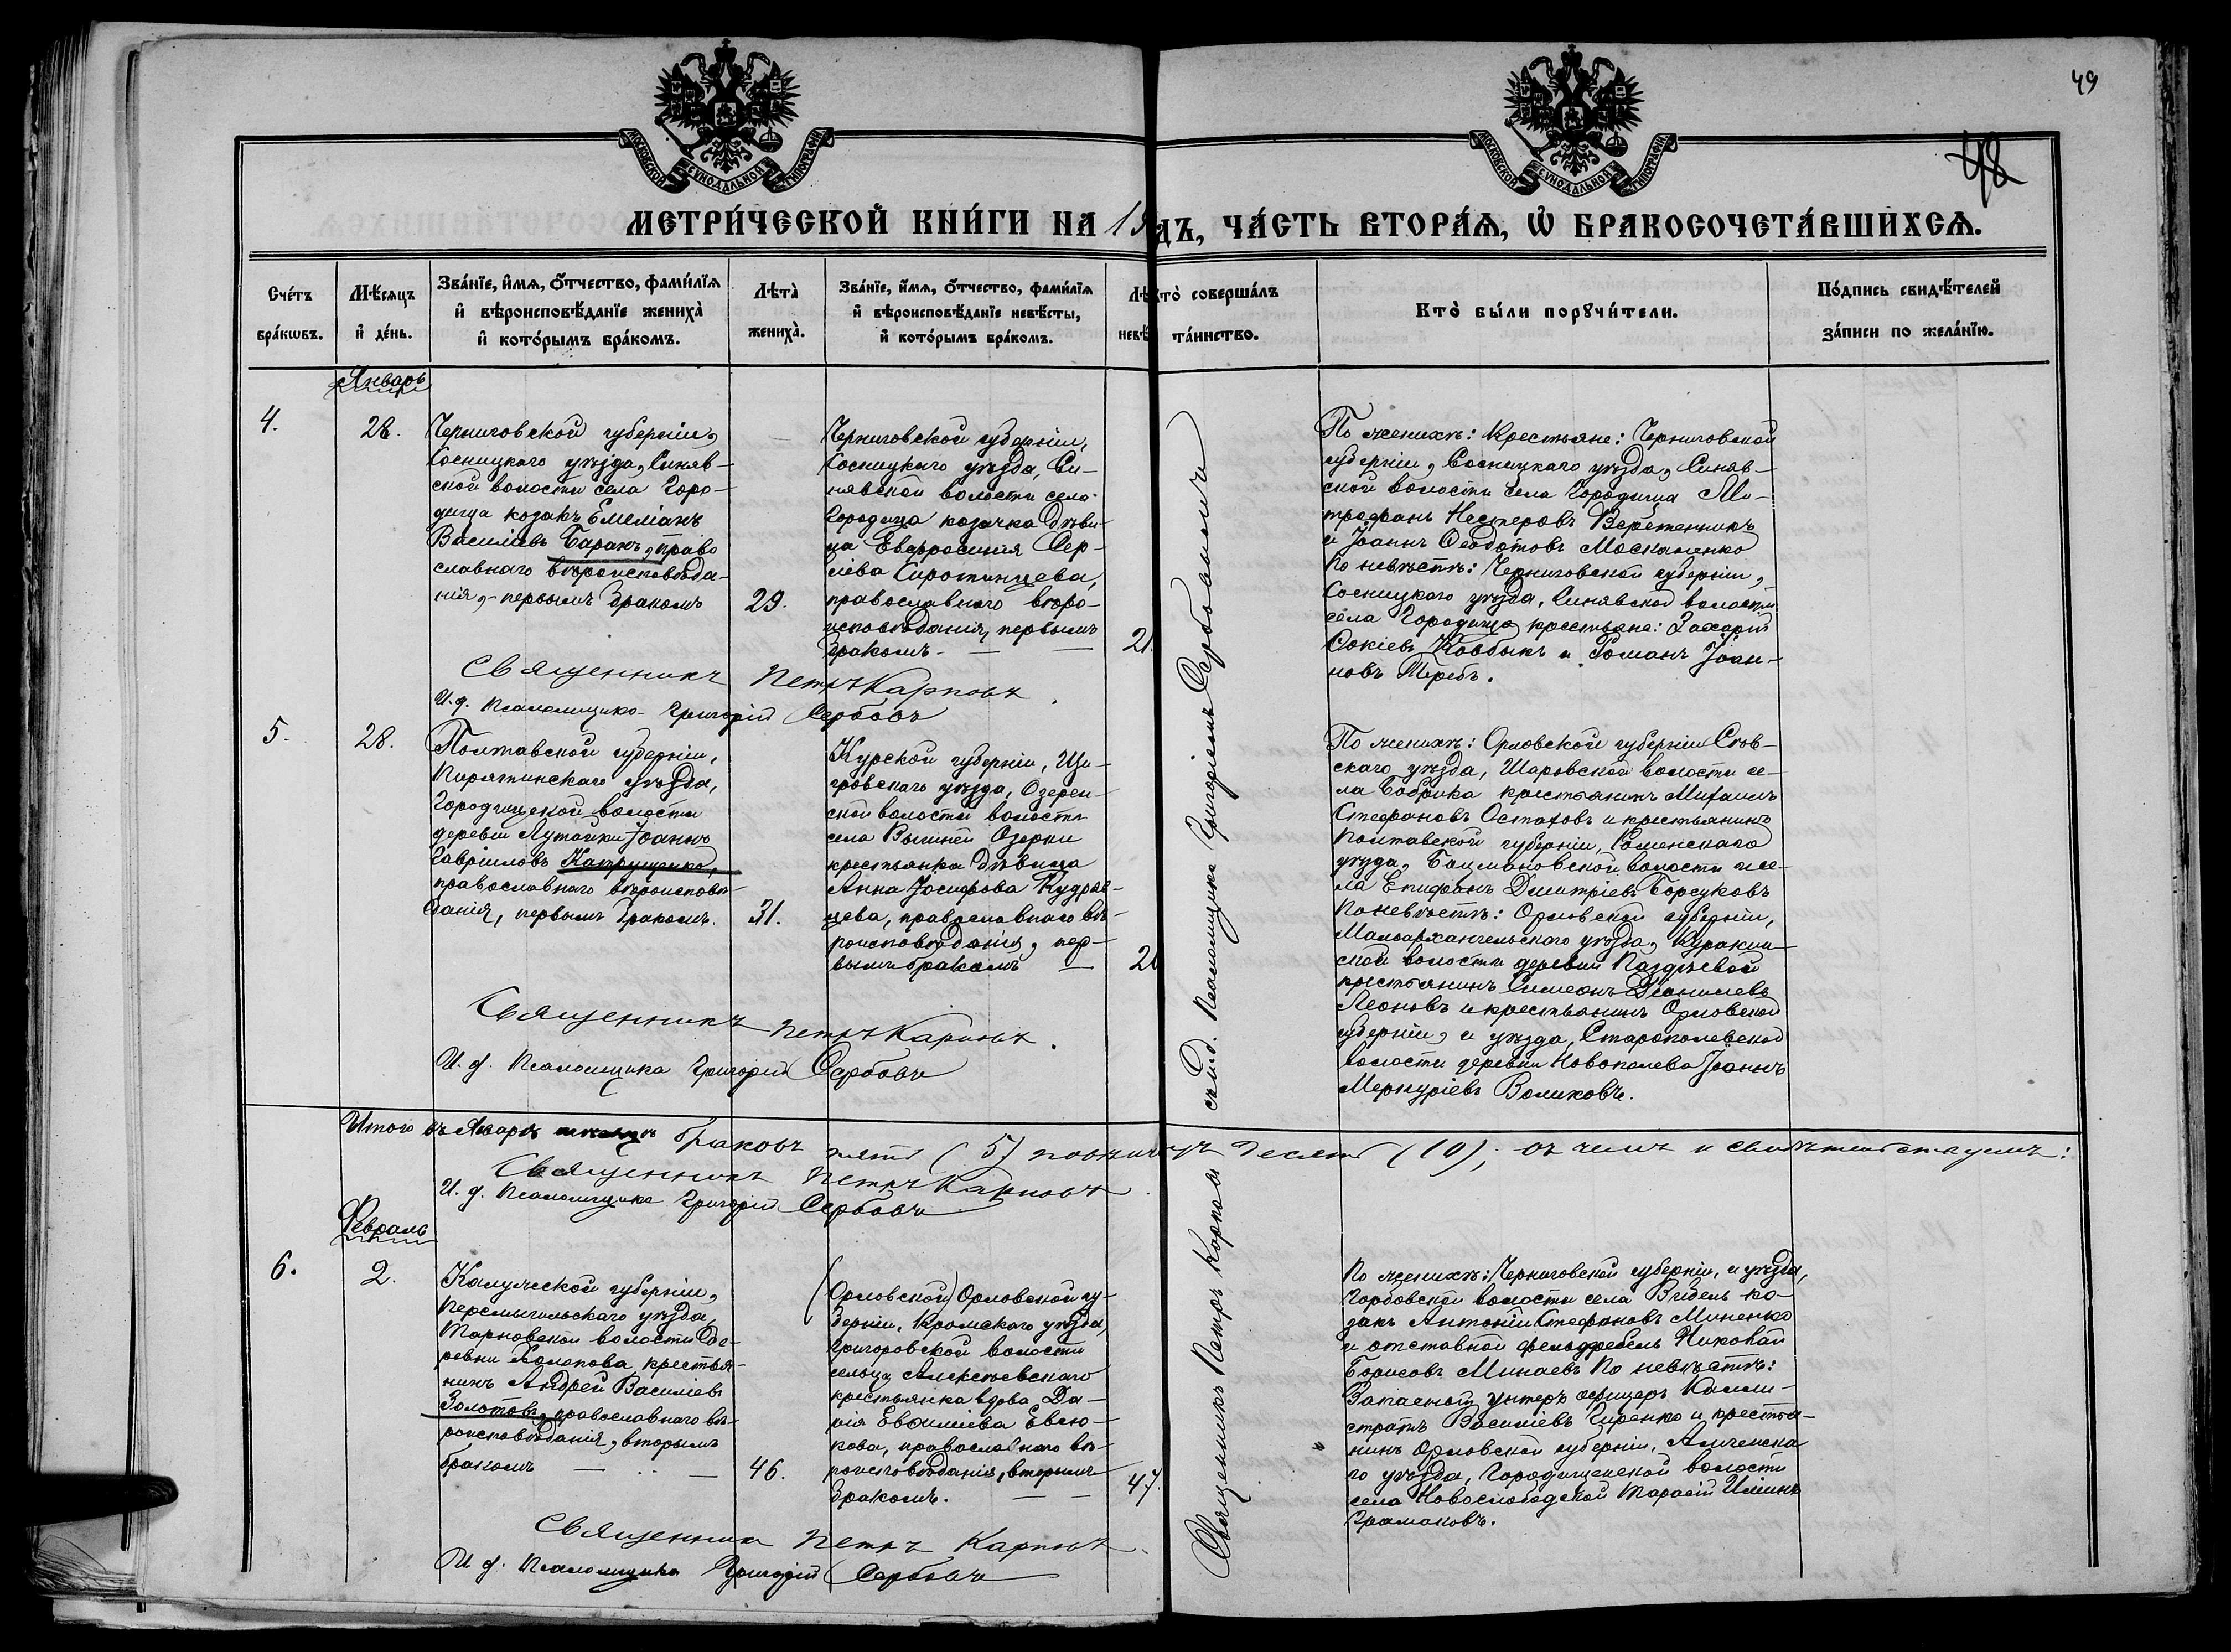 49
48
МОСКОВСКОЙ СѴНОДАЛЬНОЙ ТИПОГРАФІИ
МОСКОВСКОЙ СѴНОДАЛЬНОЙ ТИПОГРАФІИ
МЕТРИ́ЧЕСКОЙ КНИ́ГИ НА 19
ДЪ, ЧА́СТЬ ВТОРА́Ѧ, Ѽ БРАКОСОЧЕТА́ВШИХСѦ.
Сче́тъ
бра́кѡвъ.
Мѣ́сѧцъ
и҆ де́нь.
Зва́нїе, и҆́мѧ, ѻ҆́тчество, фами́лїѧ
и҆ вѣроисповѣ́данїе жениха̀
и҆ кото́рымъ бра́комъ.
Лѣта̀
жениха̀.
Зва́нїе, и҆́мѧ, ѻ҆́тчество, фами́лїѧ
и҆ вѣроисповѣ́данїе невѣ́сты,
и҆ кото́рымъ бра́комъ.
Лѣ
невѣ
кто̀ соверша́лъ
та́инство.
Кто̀ бы́ли порꙋчи́тели.
По́дпись свидѣ́телей
за́писи по жела́нїю.
Январь
4.
28.
Черниговской губерніи,
Сосницкаго уѣзда, Синяв-
ской волости села Горо-
дища козакъ Емеліанъ
Василіевъ Баранъ, право
славнаго вѣроисповѣда-
нія, первымъ бракомъ
29.
Черниговской губерніи,
Сосницкаго уѣзда, Си-
нявской волости села
Городища козачка дѣви-
ца Евфросинія Сер-
гіева Сиротинцева,
православнаго вѣро-
исповѣданія, первымъ
бракомъ
21.
По женихѣ: Крестьяне: Черниговской
губерніи, Сосницкаго уѣзда, Синяв-
ской волости села Городища Ми-
трофанъ Нестеровъ Веретенникъ
и Іоаннъ Ѳеодотовъ Москаленко
По невѣстѣ: Черниговской губерніи,
Сосницкаго уѣзда, Синявской волости
села Городища крестьяне: Захарій
Ковбыкъ и Романъ Іоан-
новъ Теребъ.
Священникъ Петръ Карповъ.
И. д. Псаломщика Григорій Сербовъ
5.
28.
Полтавской губерніи,
Пирятинскаго уѣзда,
Городищской волости
деревни Лутайки Іоаннъ
Гавріиловъ Катрущенко,
православнаго вѣроисповѣ-
данія, первымъ бракомъ.
31.
Курской губерніи, Щи-
гровскаго уѣзда, Озерен-
ской волости волости
села Вышней Озерки
крестьянка дѣвица
Анна Іосифова Кудряв-
цева, православнаго вѣ-
роисповѣданія, пер-
вымъ бракомъ
2
По женихѣ: Орловской губерніи Сѣв-
скаго уѣзда, Шаровской волости се-
ла Бобрика крестьянинъ Михаилъ
Стефановъ Остаховъ и крестьянинъ
Полтавской губерніи, Роменскаго
уѣзда, Бацмановской волости и се-
ла Епифанъ Димитріевъ Борсуковъ
По невѣстѣ: Орловской губерніи,
Малоархангельскаго уѣзда, Куракин-
ской волости деревни
крестьянинъ Симеонъ Даниловъ
Леоновъ и крестьянинъ Орловской
губерніи, и уѣзда, Старополевской
волости деревни Новополева Іоаннъ
Меркуріевъ Воликовъ.
Священникъ Петръ Карповъ.
И. д. Псаломщика Григорій Сербовъ
Итого въ Январѣ браковъ пять (5) десять (10), въ чемъ и свидѣтельствуемъ:
Священникъ Петръ Карповъ.
И. д. Псаломщика Григорій Сербовъ
Февраль
6.
2.
Калужской губерніи,
Перемышльскаго уѣзда,
Торновской волости де-
ревни Холопова крестья-
нинъ Андрей Василіевъ
Золотовъ, православнаго вѣ-
роисповѣданія, вторымъ
бракомъ
46.
(Орловской) Орловской гу-
берніи, Кромскаго уѣзда,
Григоровской волости
сельца Алексѣевскаго
крестьянка вдова Да-
рія Евѳиміева Евсю-
кова, православнаго вѣ-
роисповѣданія, вторымъ
бракомъ.
47.
По женихѣ: Черниговской губерніи, и уѣзда,
Горбовской волости села Выбель ко-
закъ Антоній Стефановъ Миненко
и отставной фельдфебель Николай
Борисовъ Минаевъ По невѣстѣ:
Запасный унтеръ офицеръ Калли-
стратъ Василіевъ Гиренко и крестья-
нинъ Орловской губерніи, Мценска
го уѣзда, Городищенской волости
села Новослободской Тарасій Ильинъ
Грамаковъ.
Священникъ Петръ Карповъ.
И. д. Псаломщика Григорій Сербовъ
Священникъ Петръ Карповъ съ и.д. Псаломщика Григоріемъ Сербовымъ